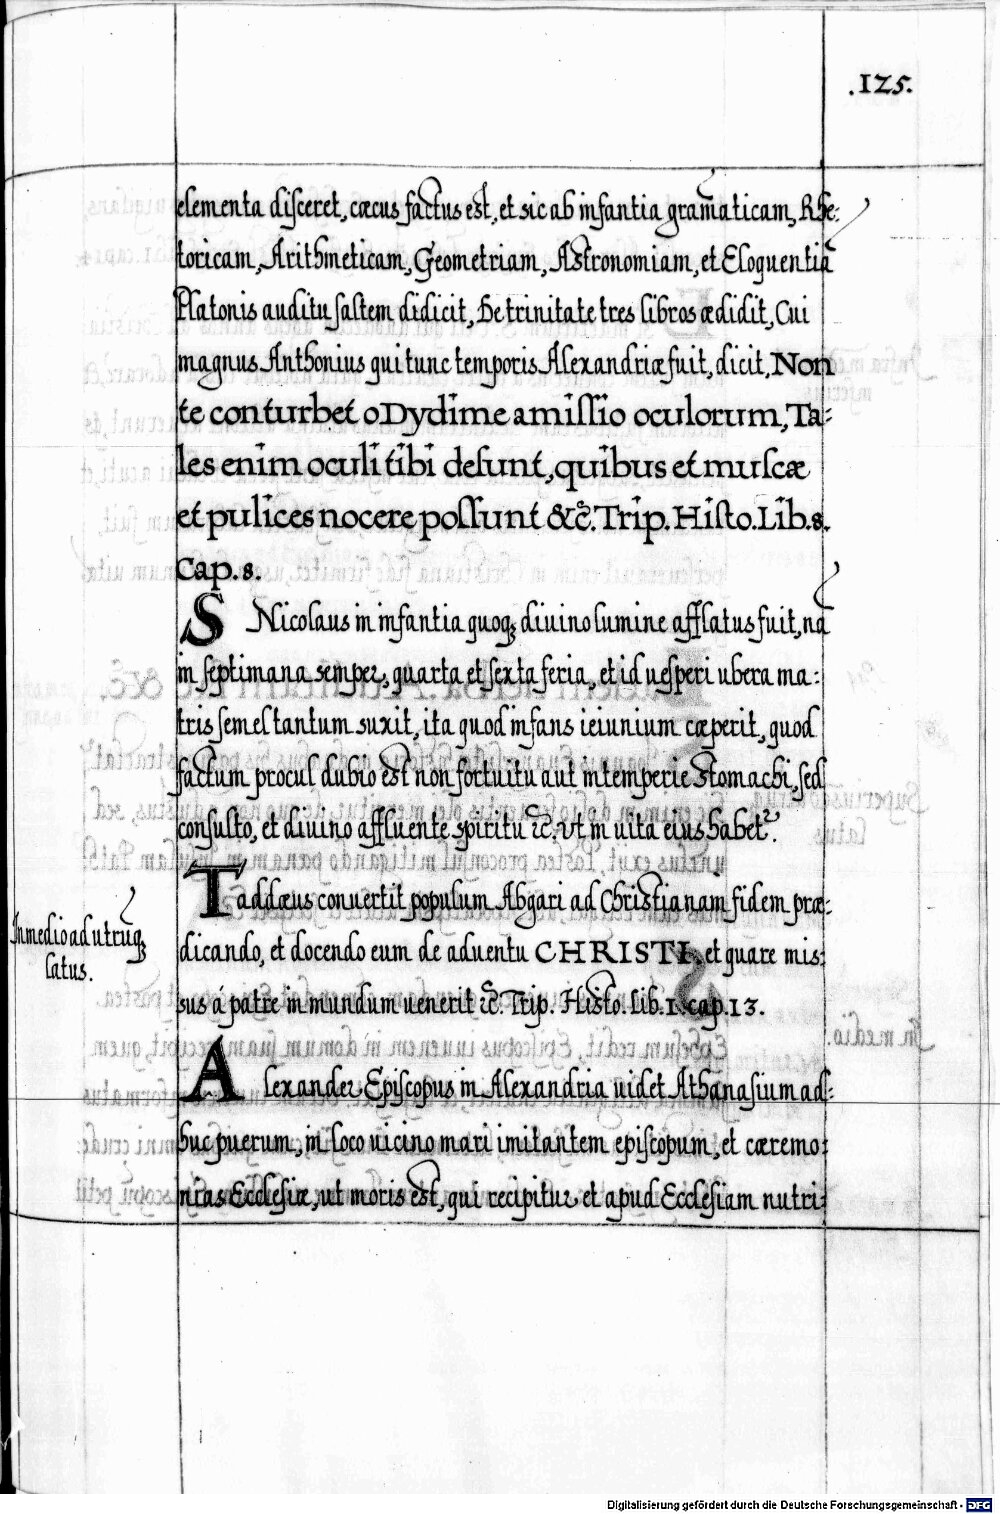 .125.
elementa disceret, cæcus factus est, et sic ab infantia gram̄aticam, Rhe:
toricam, Arithmeticam, Geometriam, Astronomiam, et Eloquentiā
Platonis auditu saltem didicit, De trinitate tres libros ædidit, Cui
magnus Anthonius qui tunc temporis Alexandriæ fuit, dicit, Non
te conturbet o Dydime amissio oculorum, Ta:
les enim oculi tibi desunt, quibus et muscæ
et pulices nocere possunt &c̃. Trip. Histo. Lib. 8.
Cap. 8.
S Nicolaus in infantia quoq; diuino lumine afflatus fuit, nā
in septimana semper, quarta et sexta feria, et id uesperi ubera ma:
tris semel tantum suxit, ita quod infans ieiunium cæperit, quod
factum procul dubio est non fortuitu aut intemperie stomachi, sed
consulto, et diuino affluente spiritu ꝛc̃. Vt in uita eius habet̉.
Taddæus conuertit populum Abgari ad Christianam fidem præ:
In medio ad utrūq;
latus.
dicando, et docendo eum de aduentu CHRISTI, et quare mis:
sus á patre in mundum uenerit ꝛc̃. Trip. Histo. Lib. 1. cap. 13.
Alexander Episcopus in Alexandria uidet Athanasium ad:
huc puerum, in loco uicino mari imitantem episcopum, et cæremo:
nias Ecclesiæ, ut moris est, qui recipitur et apud Ecclesiam nutri:
Digitalisierung gefördert durch die Deutsche Forschungsgemeinschaft - DFG